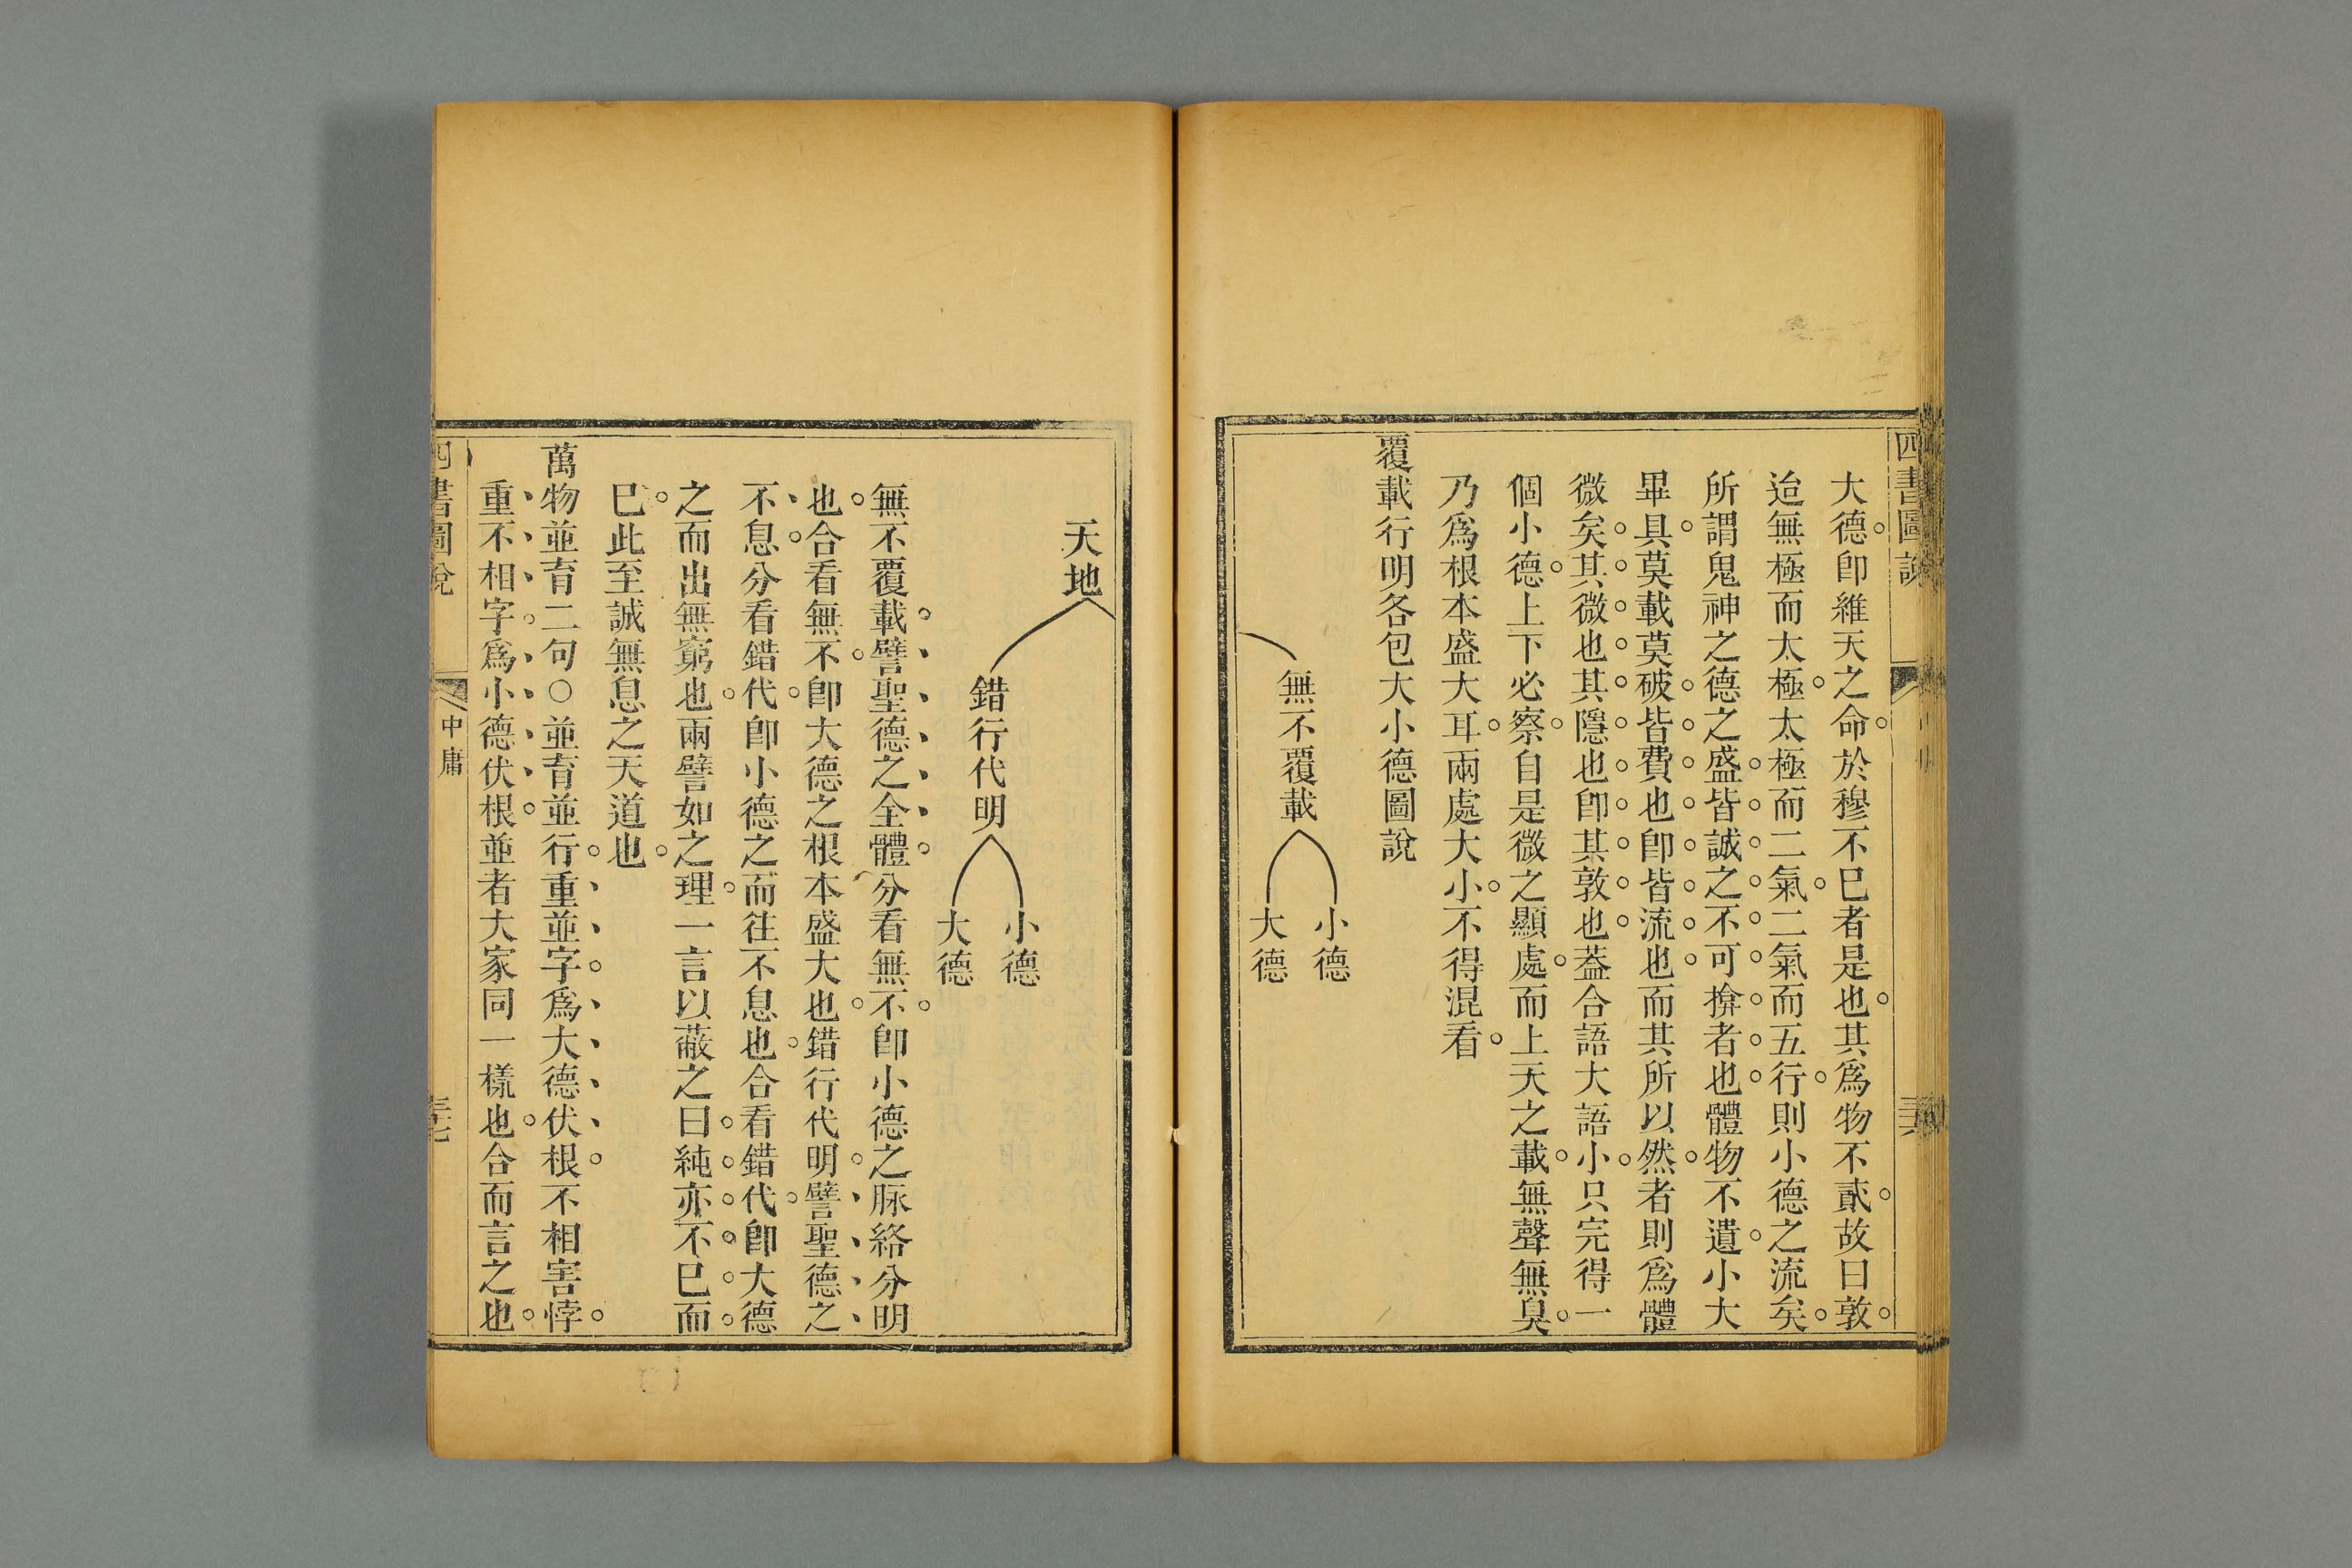 四書圖說
三六
大德卽維天之命於穆不巳者是也其爲物不貳故曰敦
迨無極而太極太極而二氣二氣而五行則小德之流矣
所謂鬼神之德之盛皆誠之不可揜者也體物不遺小大
畢具莫載莫破皆費也卽皆流也而其所以然者則爲體
微矣其微也其隱也卽其敦也葢合語大語小只完得一
個小德上下必察自是微之顯處而上天之載無聲無臭
乃爲根本盛大耳兩處大小不得混看
覆載行明各包大小德圖說
無不覆載
小德
大德
天地
錯行代明
小德
大德
無不覆載譬聖德之全體分看無不卽小德之脉絡分明
也合看無不卽大德之根本盛大也錯行代明譬聖德之
不息分看錯代卽小德之而往不息也合看錯代卽大德
之而出無窮也兩譬如之理一言以蔽之曰純亦不巳而
巳此至誠無息之天道也
萬物並育二句○並育並行重並字爲大德伏根不相害悖
重不相字爲小德伏根並者大家同一樣也合而言之也
四書圖說
中庸
三七